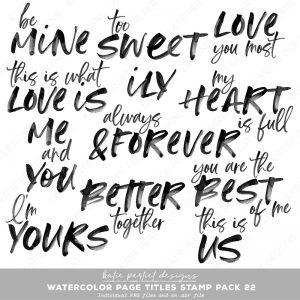 be
MINE
too
SWEET
LOVE
you most
this is what
LOVE IS
ILY
my
HEART
is full
ME
and
YOU
always
& FOREVER
BETTER
together
you are the
BEST
of me
I'm
YOURS
this is
US
katie pertiet designs
WATERCOLOR PAGE TITLES STAMP PACK 22
Individual PNG files and an .abr file